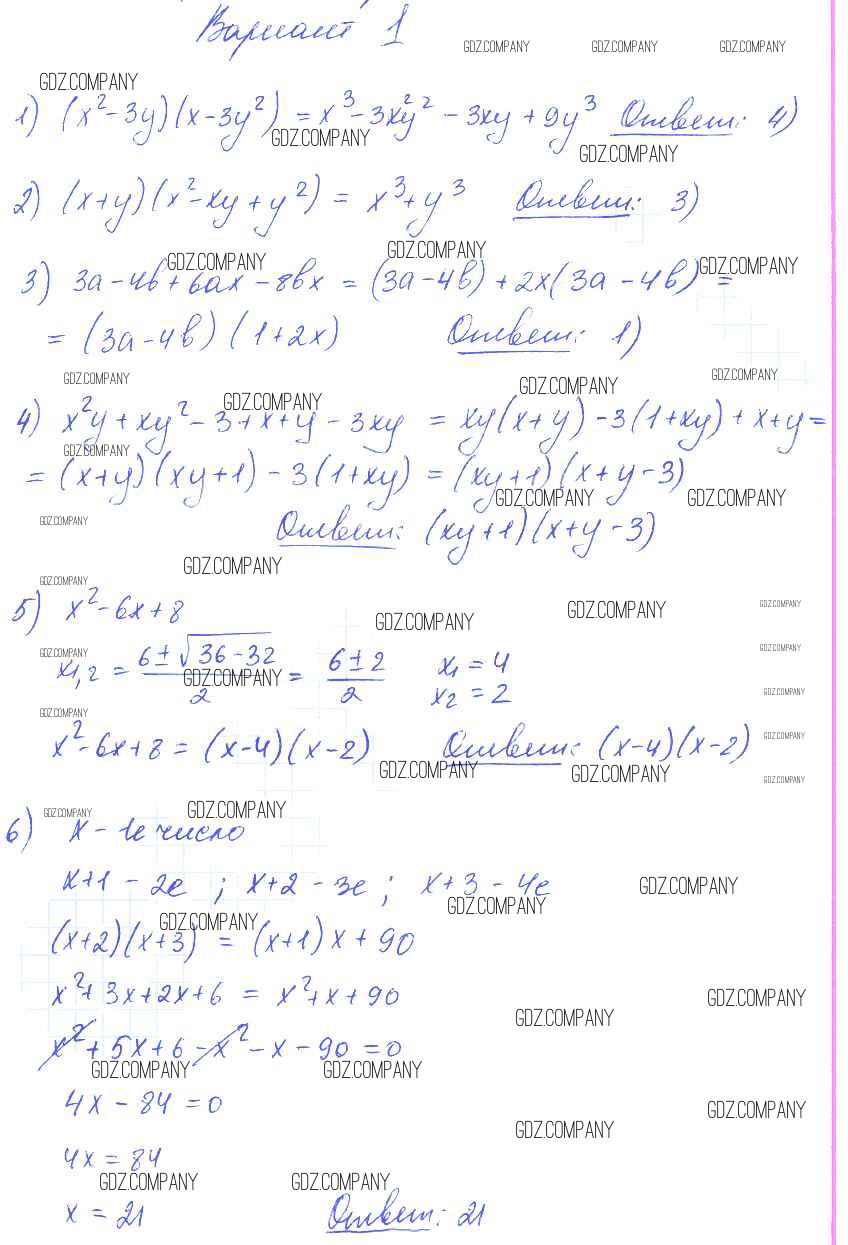 Вариант 1
GDZ.COMPANY GDZ.COMPANY GDZ.COMPANY
GDZ.COMPANY
1) (x² - 3y)(x - 3y²) = x³ - 3x²y² - 3xy + 9y³ Ответ: 4)
GDZ.COMPANY
GDZ.COMPANY
2) (x+y)(x² - xy + y²) = x³ + y³ Ответ: 3)
GDZ.COMPANY GDZ.COMPANY GDZ.COMPANY
3) 3a - 4b + 6ax - 8bx = (3a - 4b) + 2x(3a - 4b) =
= (3a - 4b)(1 + 2x) Ответ: 1)
GDZ.COMPANY GDZ.COMPANY GDZ.COMPANY GDZ.COMPANY
4) x²y + xy² - 3 + x + y - 3xy = xy(x+y) - 3(1+xy) + x+y =
GDZ.COMPANY
= (x+y)(xy+1) - 3(1+xy) = (xy+1)(x+y-3)
GDZ.COMPANY GDZ.COMPANY
GDZ.COMPANY
Ответ: (xy+1)(x+y-3)
GDZ.COMPANY
GDZ.COMPANY
5) x² - 6x + 8
GDZ.COMPANY GDZ.COMPANY GDZ.COMPANY
GDZ.COMPANY GDZ.COMPANY
x₁,₂ = (6 ± √(36-32))/2 = (6 ± 2)/2 x₁ = 4
x₂ = 2
GDZ.COMPANY GDZ.COMPANY
GDZ.COMPANY
x² - 6x + 8 = (x-4)(x-2) Ответ: (x-4)(x-2)
GDZ.COMPANY
GDZ.COMPANY GDZ.COMPANY GDZ.COMPANY
GDZ.COMPANY GDZ.COMPANY
6) x - 1е число
x+1 - 2е ; x+2 - 3е ; x+3 - 4е
GDZ.COMPANY
GDZ.COMPANY GDZ.COMPANY
(x+2)(x+3) = (x+1)x + 90
x² + 3x + 2x + 6 = x² + x + 90
GDZ.COMPANY
GDZ.COMPANY
x² + 5x + 6 - x² - x - 90 = 0
GDZ.COMPANY GDZ.COMPANY
4x - 84 = 0
GDZ.COMPANY
GDZ.COMPANY
4x = 84
GDZ.COMPANY GDZ.COMPANY
x = 21 Ответ: 21